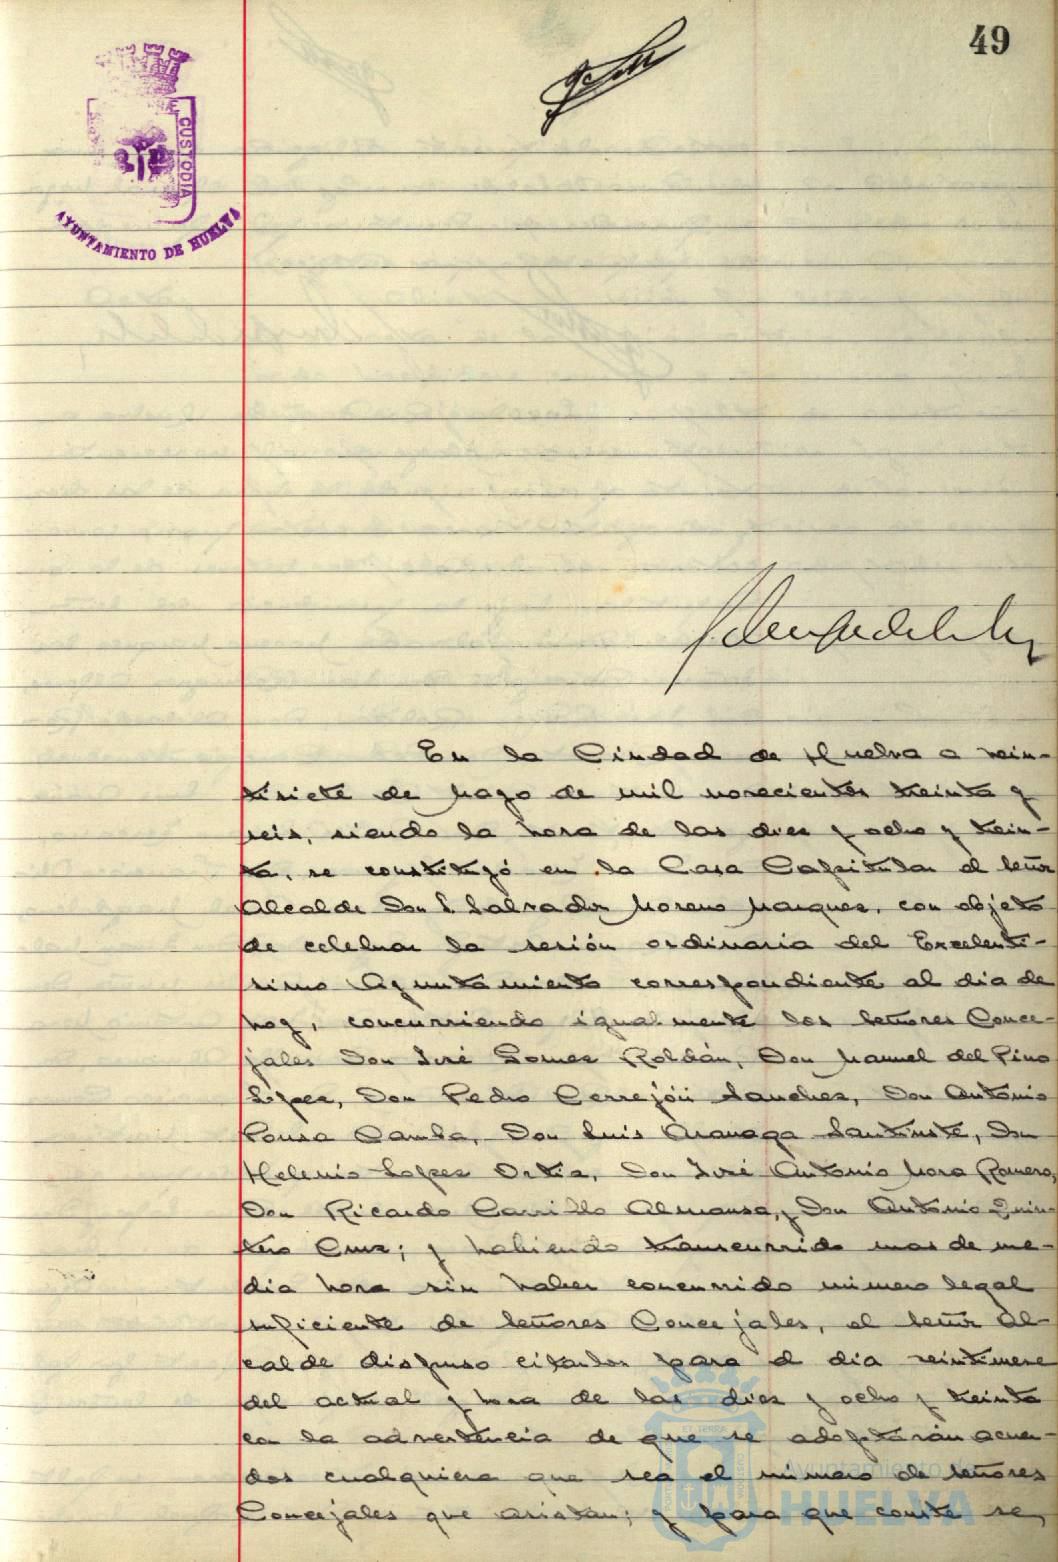 49
CUSTODIA
AYUNTAMIENTO DE HUELVA
En la Ciudad de Huelva a vein-
tisiete de Mayo de mil novecientos treinta y
seis, siendo la hora de las diez y ocho y trein-
ta, se constituyó en la Casa Capitular el Señor
Alcalde Don Salvador Moreno Marquez, con objeto
de celebrar la sesión ordinaria del Excelentí-
simo Ayuntamiento correspondiente al dia de
hoy, concurriendo igualmente los Señores Conce-
jales Don José Gomez Roldán, Don Manuel del Pino
Lopez, Don Pedro Cerrejón Sanchez, Don Antonio
Pousa Camba, Don Luis Aranaga Santiuste, Don
Helenio Lopez Ortiz, Don José Antonio Mora Romero,
Don Ricardo Carrillo Almansa, y Don Antonio Quin-
tero Cruz; y habiendo transcurrido mas de me-
dia hora sin haber concurrido número legal
suficiente de Señores Concejales, el Señor Al-
calde dispuso citarlos para el dia veintinueve
del actual y hora de las diez y ocho y treinta
con la advertencia de que se adoptarán acuer-
dos cualquiera que sea el número de Señores
Concejales que asistan; y para que conste se,
Ayuntamiento de
HUELVA